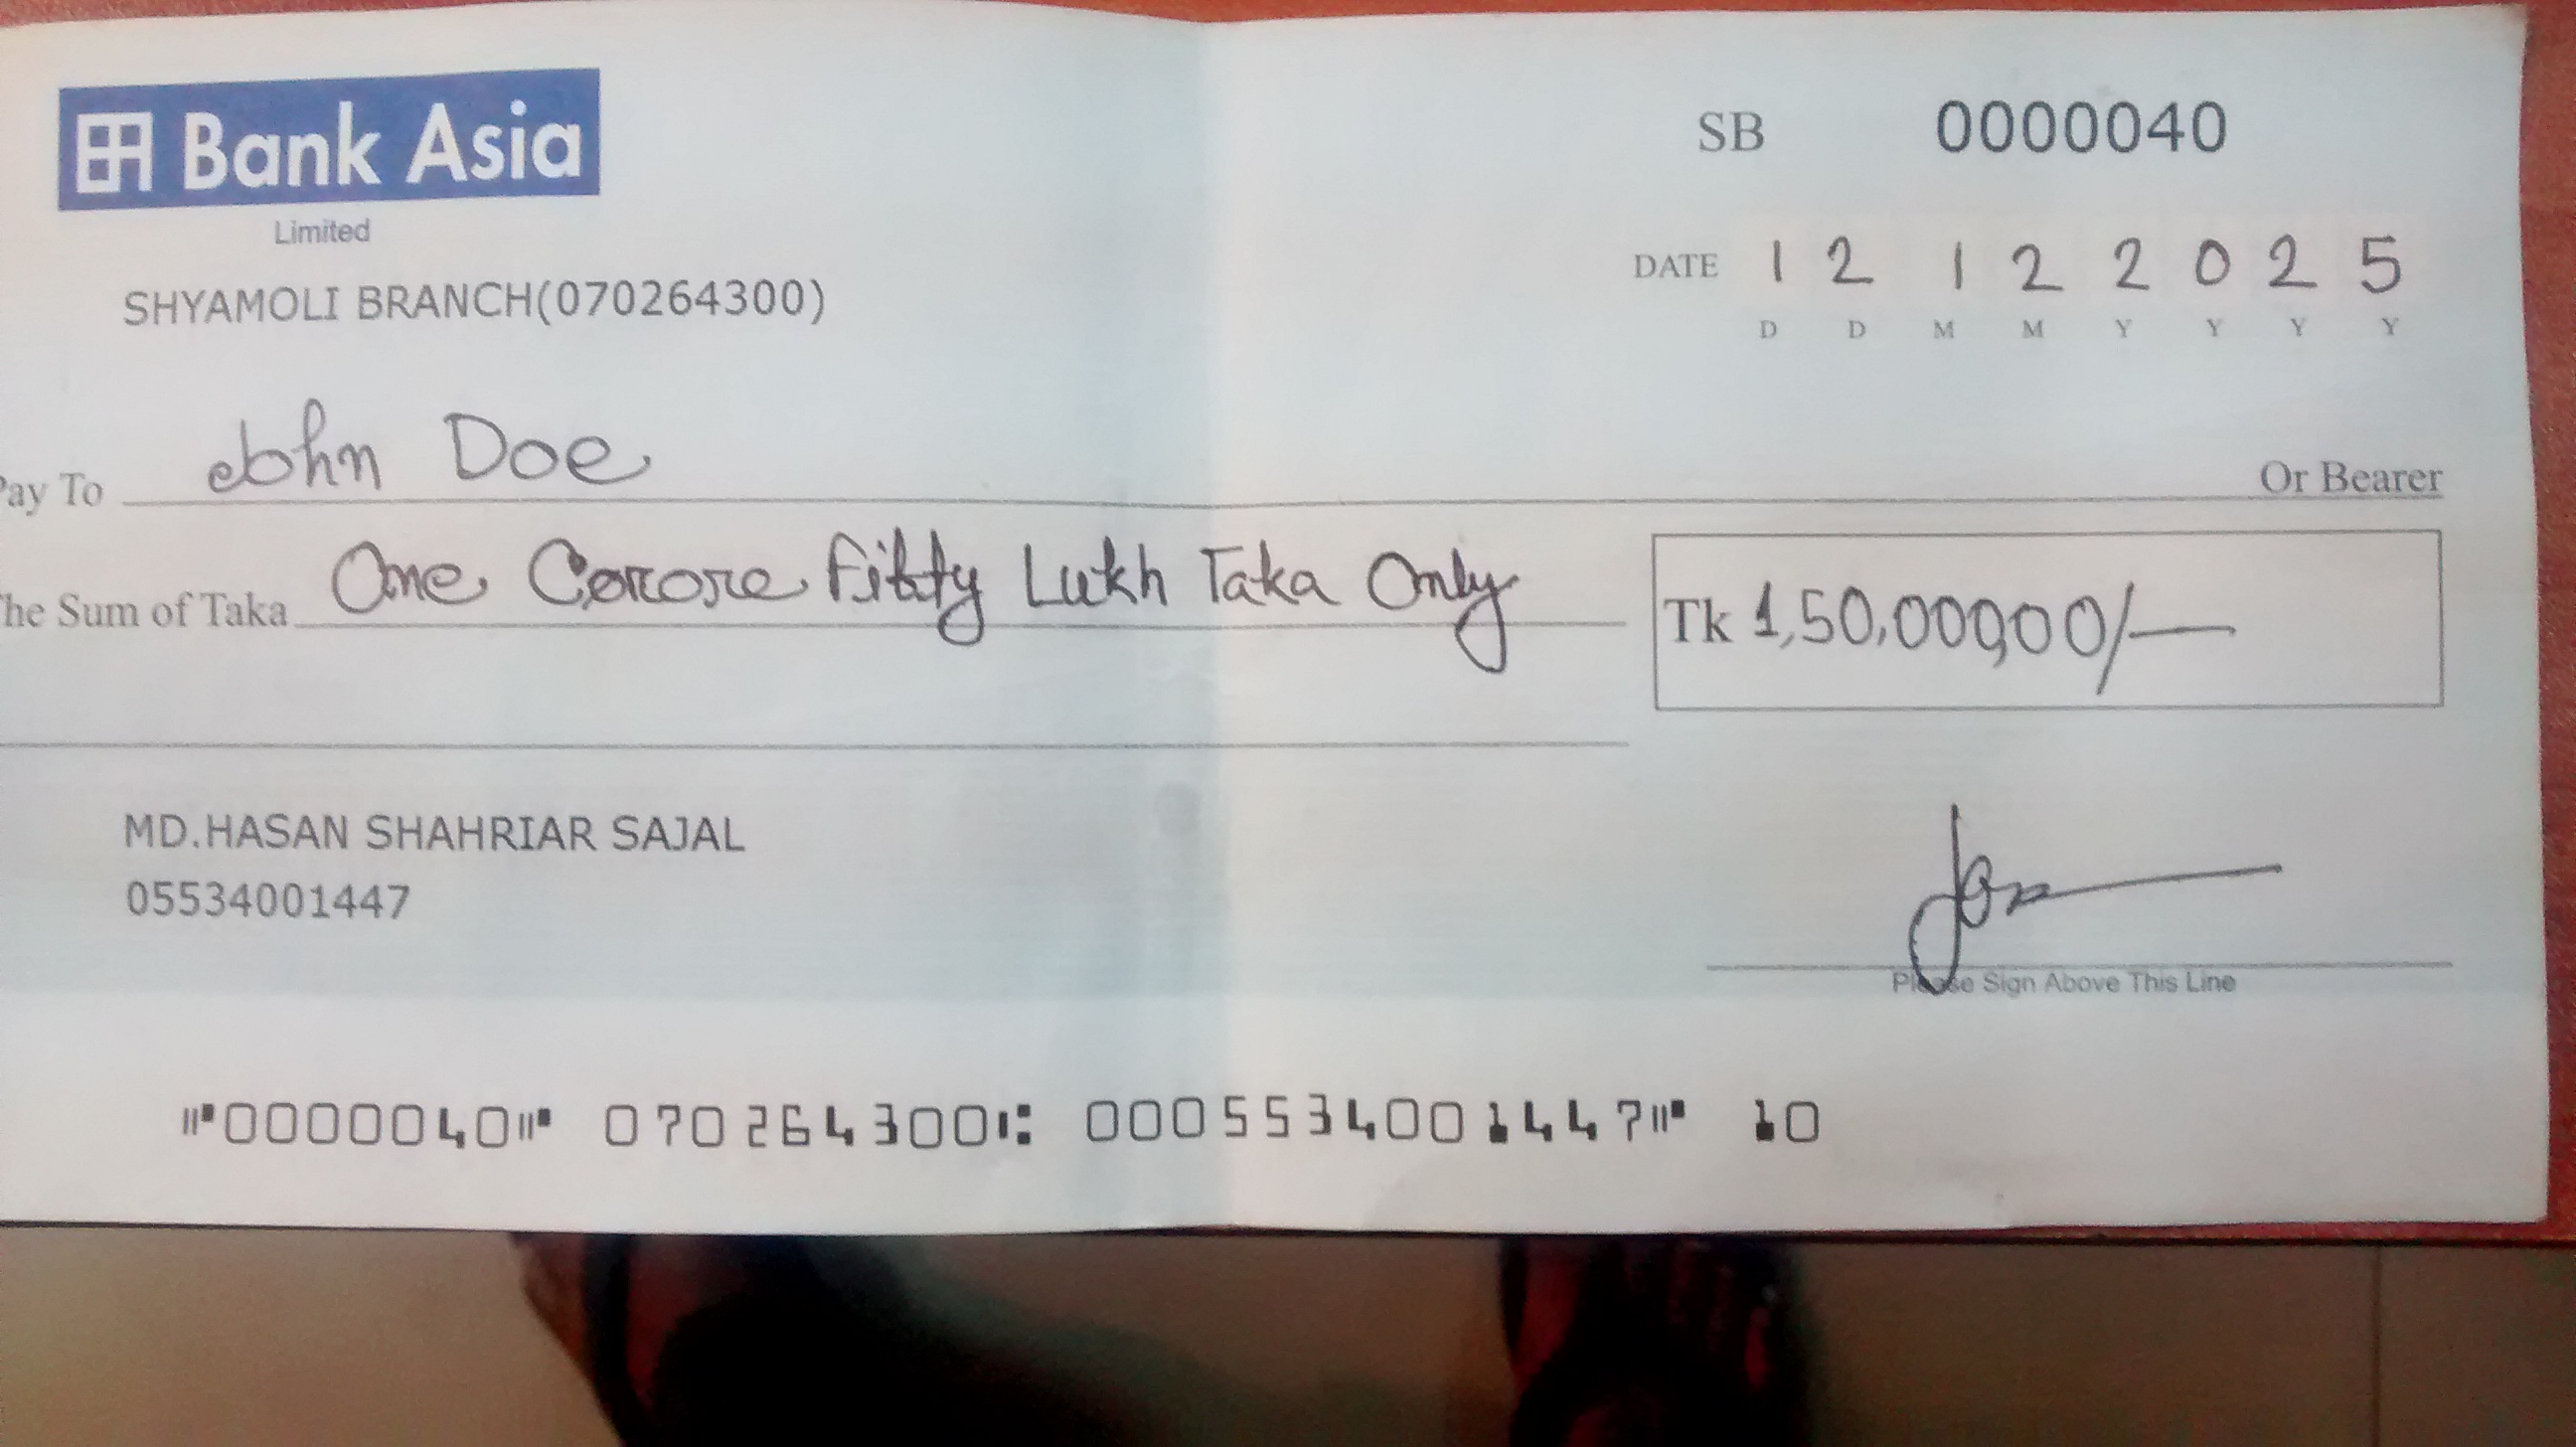 Bank Asia
Limited
SHYAMOLI BRANCH(070264300)
SB 0000040
DATE 1 2 1 2 2 0 2 5
D D M M Y Y Y Y
Pay To John Doe Or Bearer
The Sum of Taka One Corore Fifty Lukh Taka Only
Tk 1,50,00,000/—
MD.HASAN SHAHRIAR SAJAL
05534001447
Please Sign Above This Line
⑈0000040⑈ 070264300⑆ 0005534001447⑈ 10